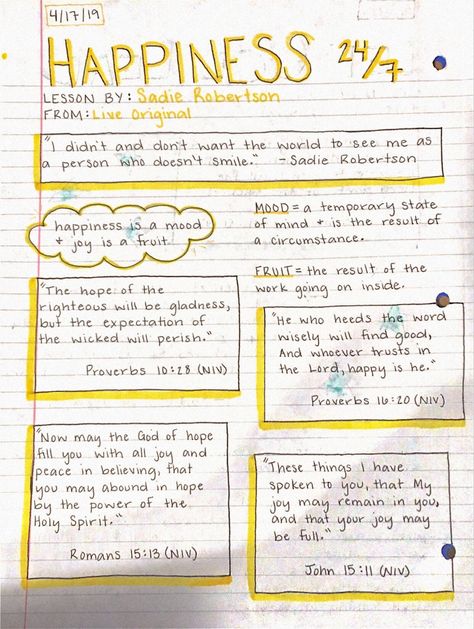 4/17/19
HAPPINESS 24/7
LESSON BY: Sadie Robertson
FROM: Live Original
"I didn't and don't want the world to see me as
a person who doesn't smile." - Sadie Robertson
happiness is a mood
+ joy is a fruit.
MOOD = a temporary state
of mind + is the result of
a circumstance.
FRUIT = the result of the
work going on inside.
"The hope of the
righteous will be gladness,
but the expectation of
the wicked will perish."
Proverbs 10:28 (NIV)
"He who heeds the word
wisely will find good,
And whoever trusts in
the Lord, happy is he."
Proverbs 16:20 (NIV)
"Now may the God of hope
fill you with all joy and
peace in believing, that
you may abound in hope
by the power of the
Holy Spirit."
Romans 15:13 (NIV)
"These things I have
spoken to you, that My
joy may remain in you,
and that your joy may
be full."
John 15:11 (NIV)